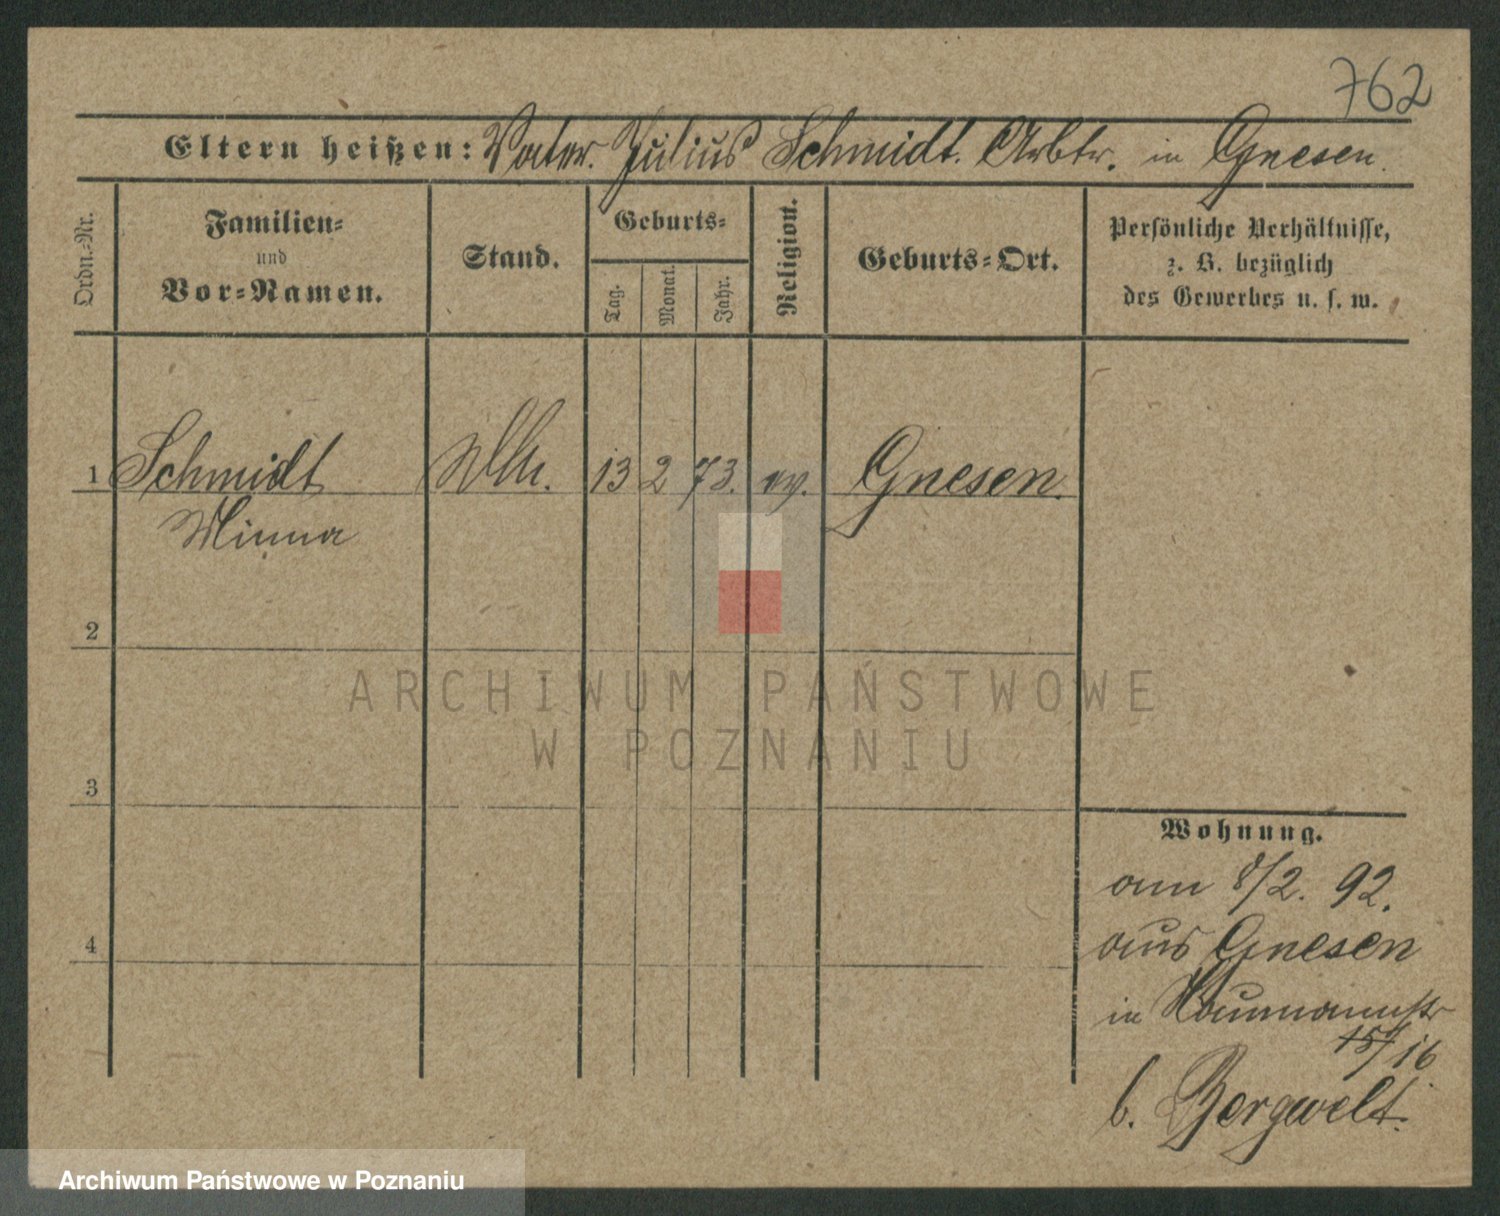 762
Eltern heißen: Vater. Julius Schmidt. Arbtr. in Gnesen.
Ordn.-Nr.
Familien-
und
Vor-Namen.
Stand.
Geburts-
Tag.
Monat.
Jahr.
Religion.
Geburts-Ort.
Persönliche Verhältnisse,
z. B. bezüglich
des Gewerbes u. s. w.
1 Schmidt 13 2 73. ev. Gnesen.
Minna
2
3
4
Wohnung.
am 8/2. 92.
aus Gnesen
in Naumannstr
15/16
b. Bergwelt.
ARCHIWUM PAŃSTWOWE
W POZNANIU
Archiwum Państwowe w Poznaniu